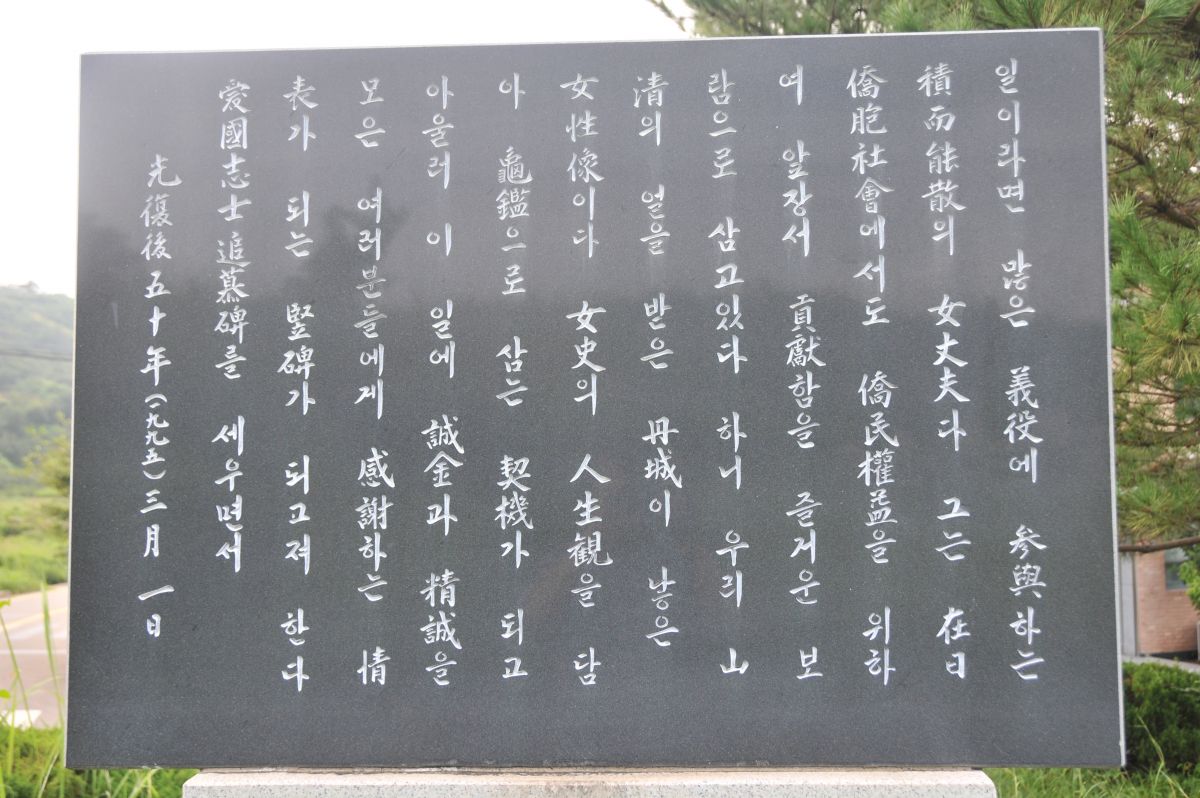 일이라면 많은 義役에 参與하는
積而能散의 女丈夫다 그는 在日
僑胞社會에서도 僑民權益을 위하
여 앞장서 貢獻함을 즐거운 보
람으로 삼고있다 하니 우리 山
清의 얼을 받은 丹城이 낳은
女性像이다 女史의 人生観을 담
아 龜鑑으로 삼는 契機가 되고
아울러 이 일에 誠金과 精誠을
모은 여러분들에게 感謝하는 情
表가 되는 竪碑가 되고져 한다
愛國志士 追慕碑를 세우면서
光復後 五十年(一九九五)三月 一日